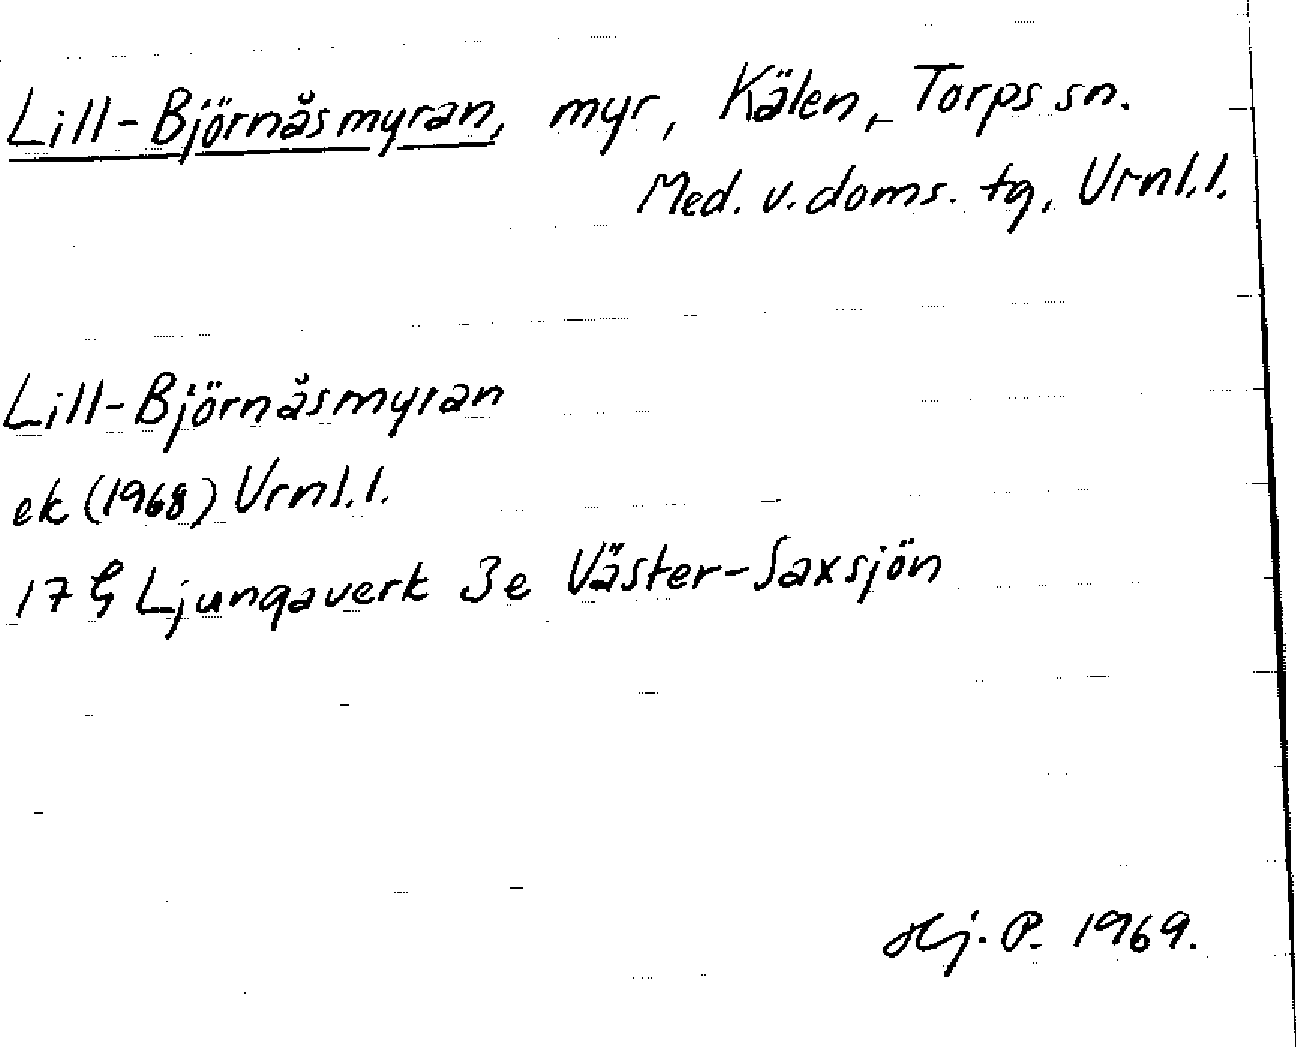 Lill-Björnåsmyran, myr, Kälen, Torps sn.
Med. v. doms. tg, Vrnl.l.
Lill-Björnåsmyran
ek (1968) Vrnl.l.
17 G Ljungaverk 3e Väster-Saxsjön
Hj. P. 1969.